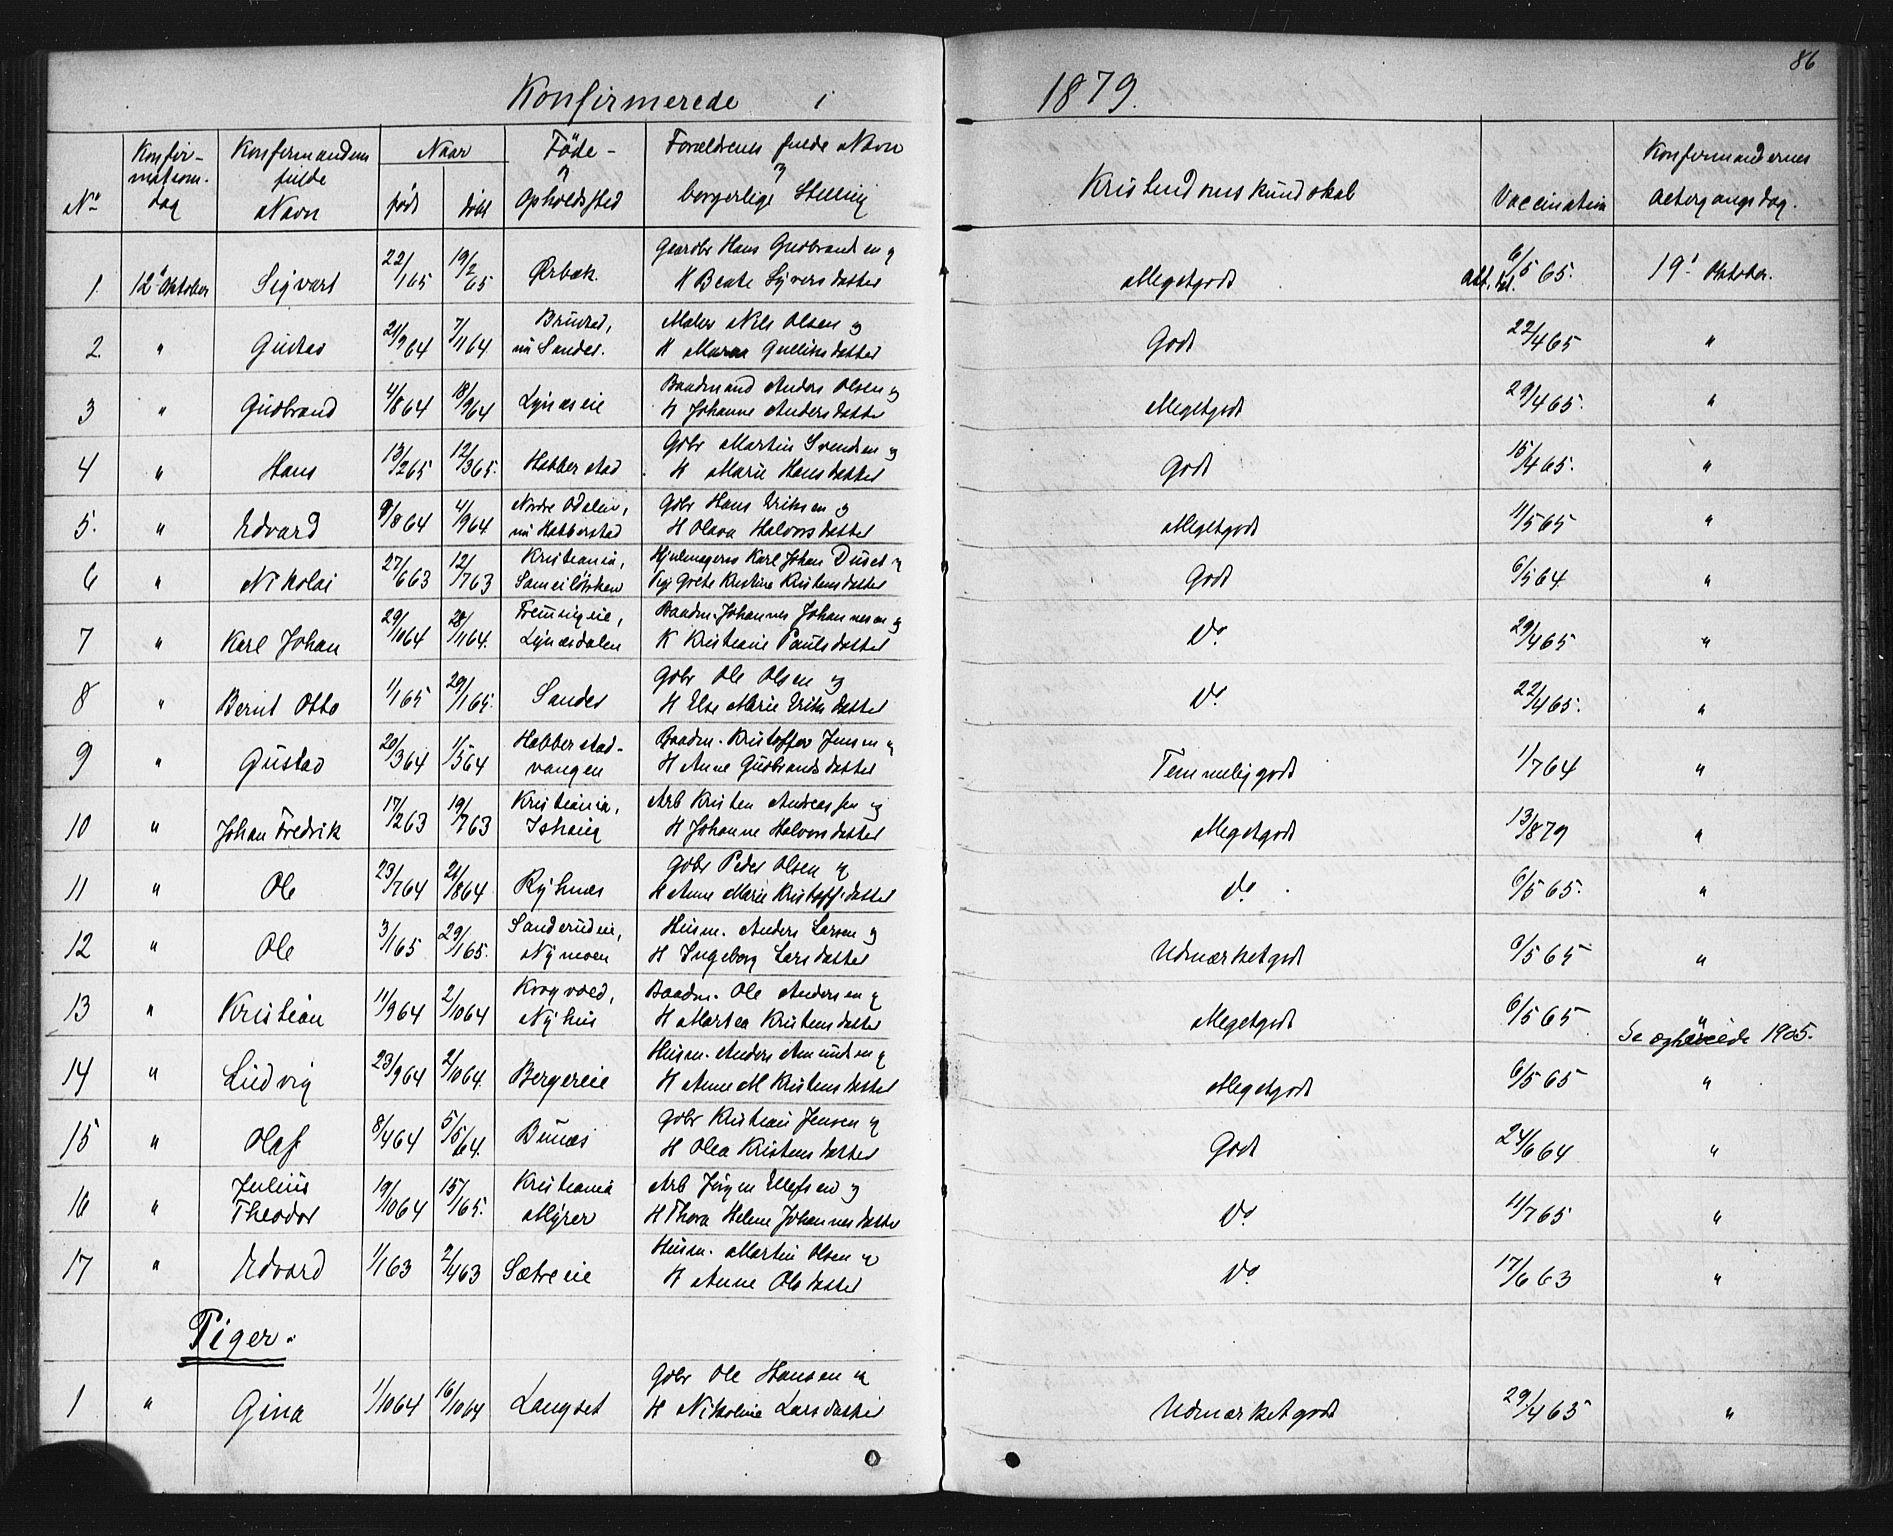 86
Konfirmerede i 1879.
No Konfirmations dag Konfirmandens fulde Navn Naar født døbt Føde- og Opholdsted Forældrenes fulde Navn og borgerlige Stilling Kristendomskundskab Vaccination Konfirmandernes Altergangsdag.
1 12 Oktober Sigvart 22/1 65 19/2 65 Ørbæk. Gaardbr Hans Gudbrandsen og H Beate Syversdatter Megetgodt 6/5 65. 19 Oktober.
2 " Gustav 21/9 64 7/11 64 nu Sander. Maler Nils Olsen og K Gulliksdatter Godt 22/4 65 "
3 " Gudbrand 4/8 64 18/9 64 Lynæseie Baadmand Anders Olsen og H Johanne Andersdatter Megetgodt 29/4 65. "
4 " Hans 13/2 65 12/3 65. Habberstad Gdbr Martin Svendsen og H Marie Hansdatter Godt 15/4 65. "
5. " Edvard 9/8 64 4/9 64 Nordre Odalen, nu Habberstad Gdbr Hans Eriksen og H Olava Halvorsdatter Megetgodt 11/5 65 "
6 " Nikolai 27/6 63 12/7 63 Kristiania, Hjulmager Karl Johan og Pige Grete Kristine Kristensdatter Godt 6/5 64 "
7 " Karl Johan 29/10 64 28/11 64. Lynæsdalen Baadm. Johannes Johannesen og K Kristiane Paulsdatter Do 29/4 65 "
8 " Bernt Otto 1/1 65 29/1 65. Sander Gdbr Ole Olsen og H Else Marie Eriksdatter Do 22/4 65. "
9 " Gustav 20/3 64 1/5 64 Habberstad- vangen Baadm. Kristoffer Jensen og H Anne Gudbrandsdatter Temmeliggodt 1/7 64 "
10 " Johan Fredrik 17/2 63 19/7 63 Kristiania, Arb Kristen Andreassen og H Johanne Halvorsdatter Megetgodt 13/8 79 "
11 " Ole 23/7 64 21/8 64 Ryhnæs Gdbr Peder Olsen og H Anne Marie Kristoff.datter Do. 6/5 65. "
12 " Ole 3/1 65 29/1 65. Sanderudeie, Nymoen Husm. Anders Larsen og H Ingeborg Larsdatter Udmærketgodt 6/5 65 "
13 " Kristian 11/9 64 2/10 64 Krogvold, Nyhus Baadm. Ole Andersen og H Martea Kristensdatter Megetgodt 6/5 65 "
1905.
14 " Ludvig 23/9 64 2/10 64. Bergereie Husm. Anders Amundsen og H Anne M Kristensdatter Megetgodt 6/5 65 "
15 " Olaf 8/4 64 5/5 64. Bunæs Gdbr Kristian Jensen og H Olea Kristensdatter Godt 24/6 64 "
16 " Julius Theodor 19/10 64 15/1 65. Kristiania Myrer Arb Jørgen Ellefsen og H Thora Helene Johannesdatter Do 11/7 65 "
17 " Edvard 1/1 63 2/4 63 Sætreeie Husm. Martin Olsen og H Anne Olsdatter Do 17/6 63 "
Piger.
1 " Gina 1/10 64 16/10 64 Langset Gdbr Ole Hansen og H Nikoline Larsdatter Udmærketgodt 29/4 65 "